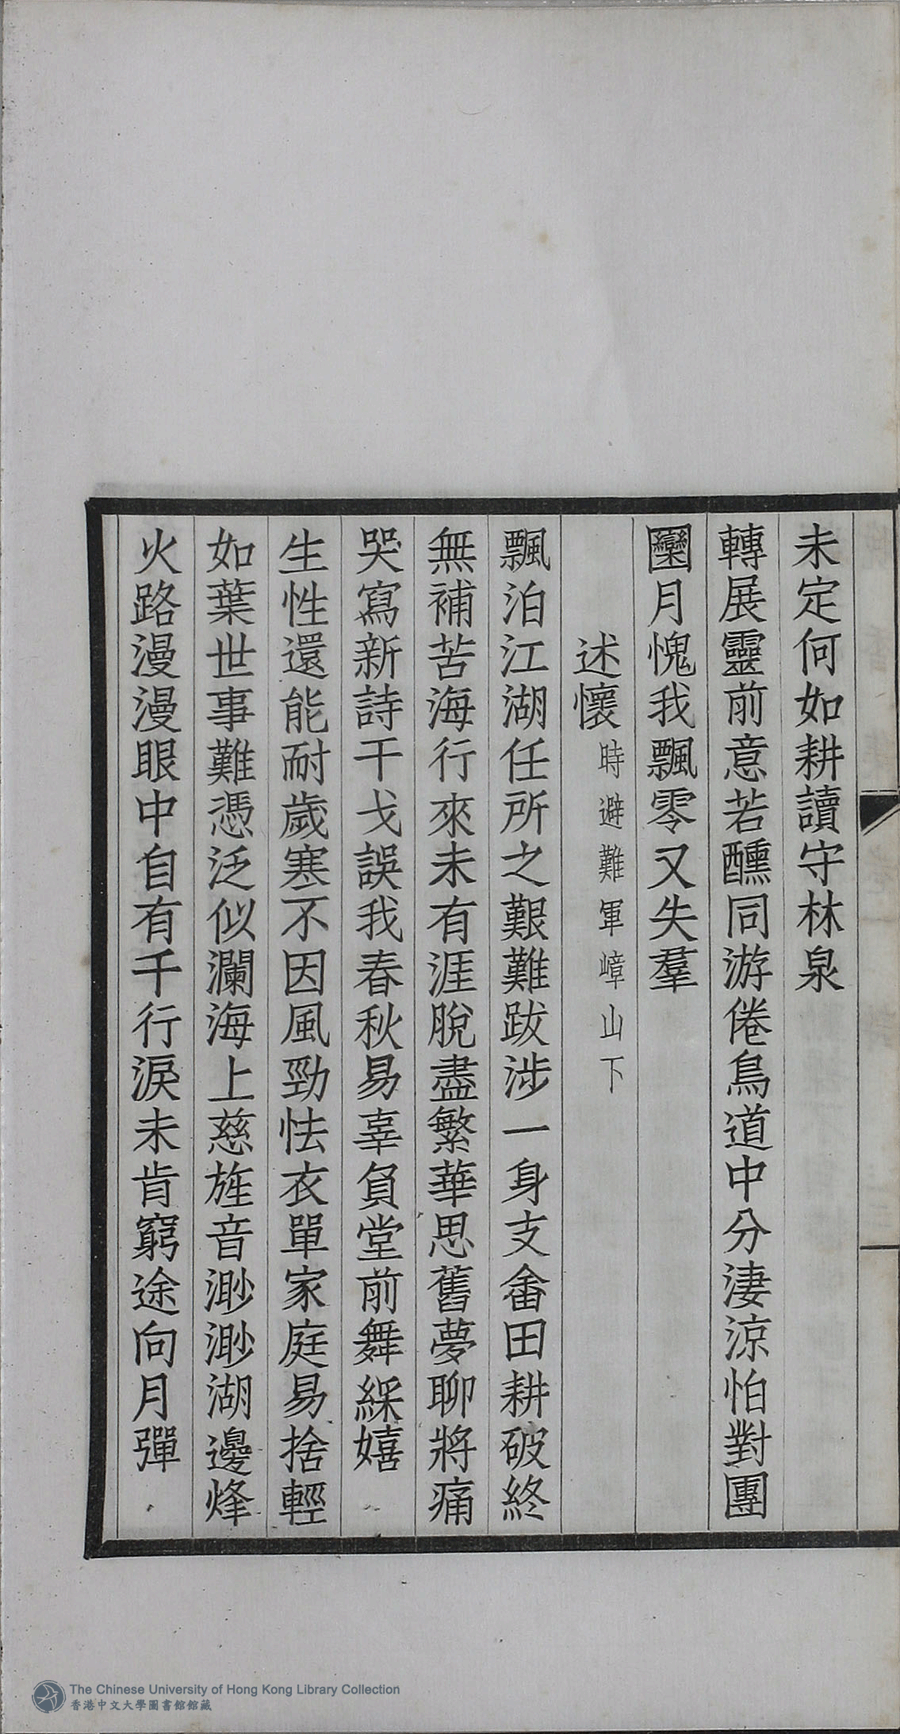 未定何如耕讀守林泉
轉展靈前意若醺同游倦鳥道中分淒涼怕對團
圞月愧我飄零又失羣
述懷時避難軍嶂山下
飄泊江湖任所之艱難跋涉一身支畬田耕破終
無補苦海行來未有涯脫盡繁華思舊夢聊將痛
哭寫新詩干戈誤我春秋易辜負堂前舞綵嬉
生性還能耐歲寒不因風勁怯衣單家庭易捨輕
如葉世事難憑泛似瀾海上慈旌音渺渺湖邊烽
火路漫漫眼中自有千行淚未肯窮途向月彈
The Chinese University of Hong Kong Library Collection
香港中文大學圖書館館藏